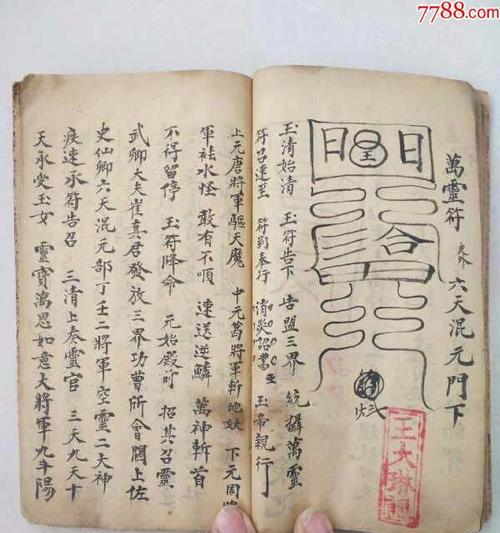 7788.com
萬靈符 六天混元門下
日 王 日
玉清始清 玉符告下 告盟三界 統攝萬靈
符召速至 符到奉行 玉帝親行
上元唐將軍驅天魔 中元葛將軍斬地妖 下元周
軍祛水怪 敢有不順 速送逆鱗 萬神斬首
不得留停 玉符降命 元始 招其召靈
武卿大夫崔真君發放三界功曹所會關上佐
史仙卿六天混元部丁壬二將軍空靈二大神
疾速承符告召 三清上奏靈官 三天九天十
天永受玉女 靈寶萬恩如意大將軍九斗陽
王大琳